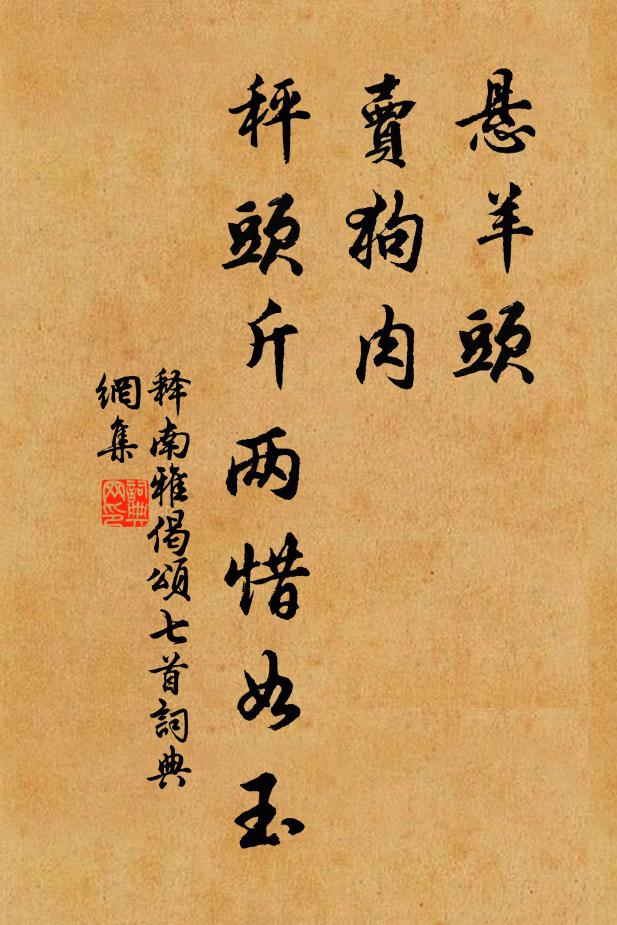 悬羊頭
賣狗肉
秤頭斤两惜如玉
释南雅偈頌七首詞典
網集
詞典
网印